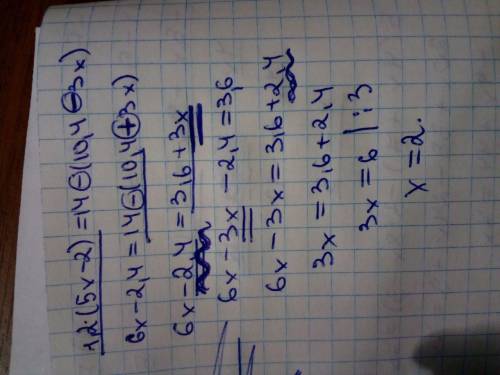 1,2·(5x-2)=14-(10,4-3x)
6x-2,4=14-(10,4+3x)
6x-2,4=3,6+3x
6x-3x-2,4=3,6
6x-3x=3,6+2,4
3x=3,6+2,4
3x=6 | :3
x=2.